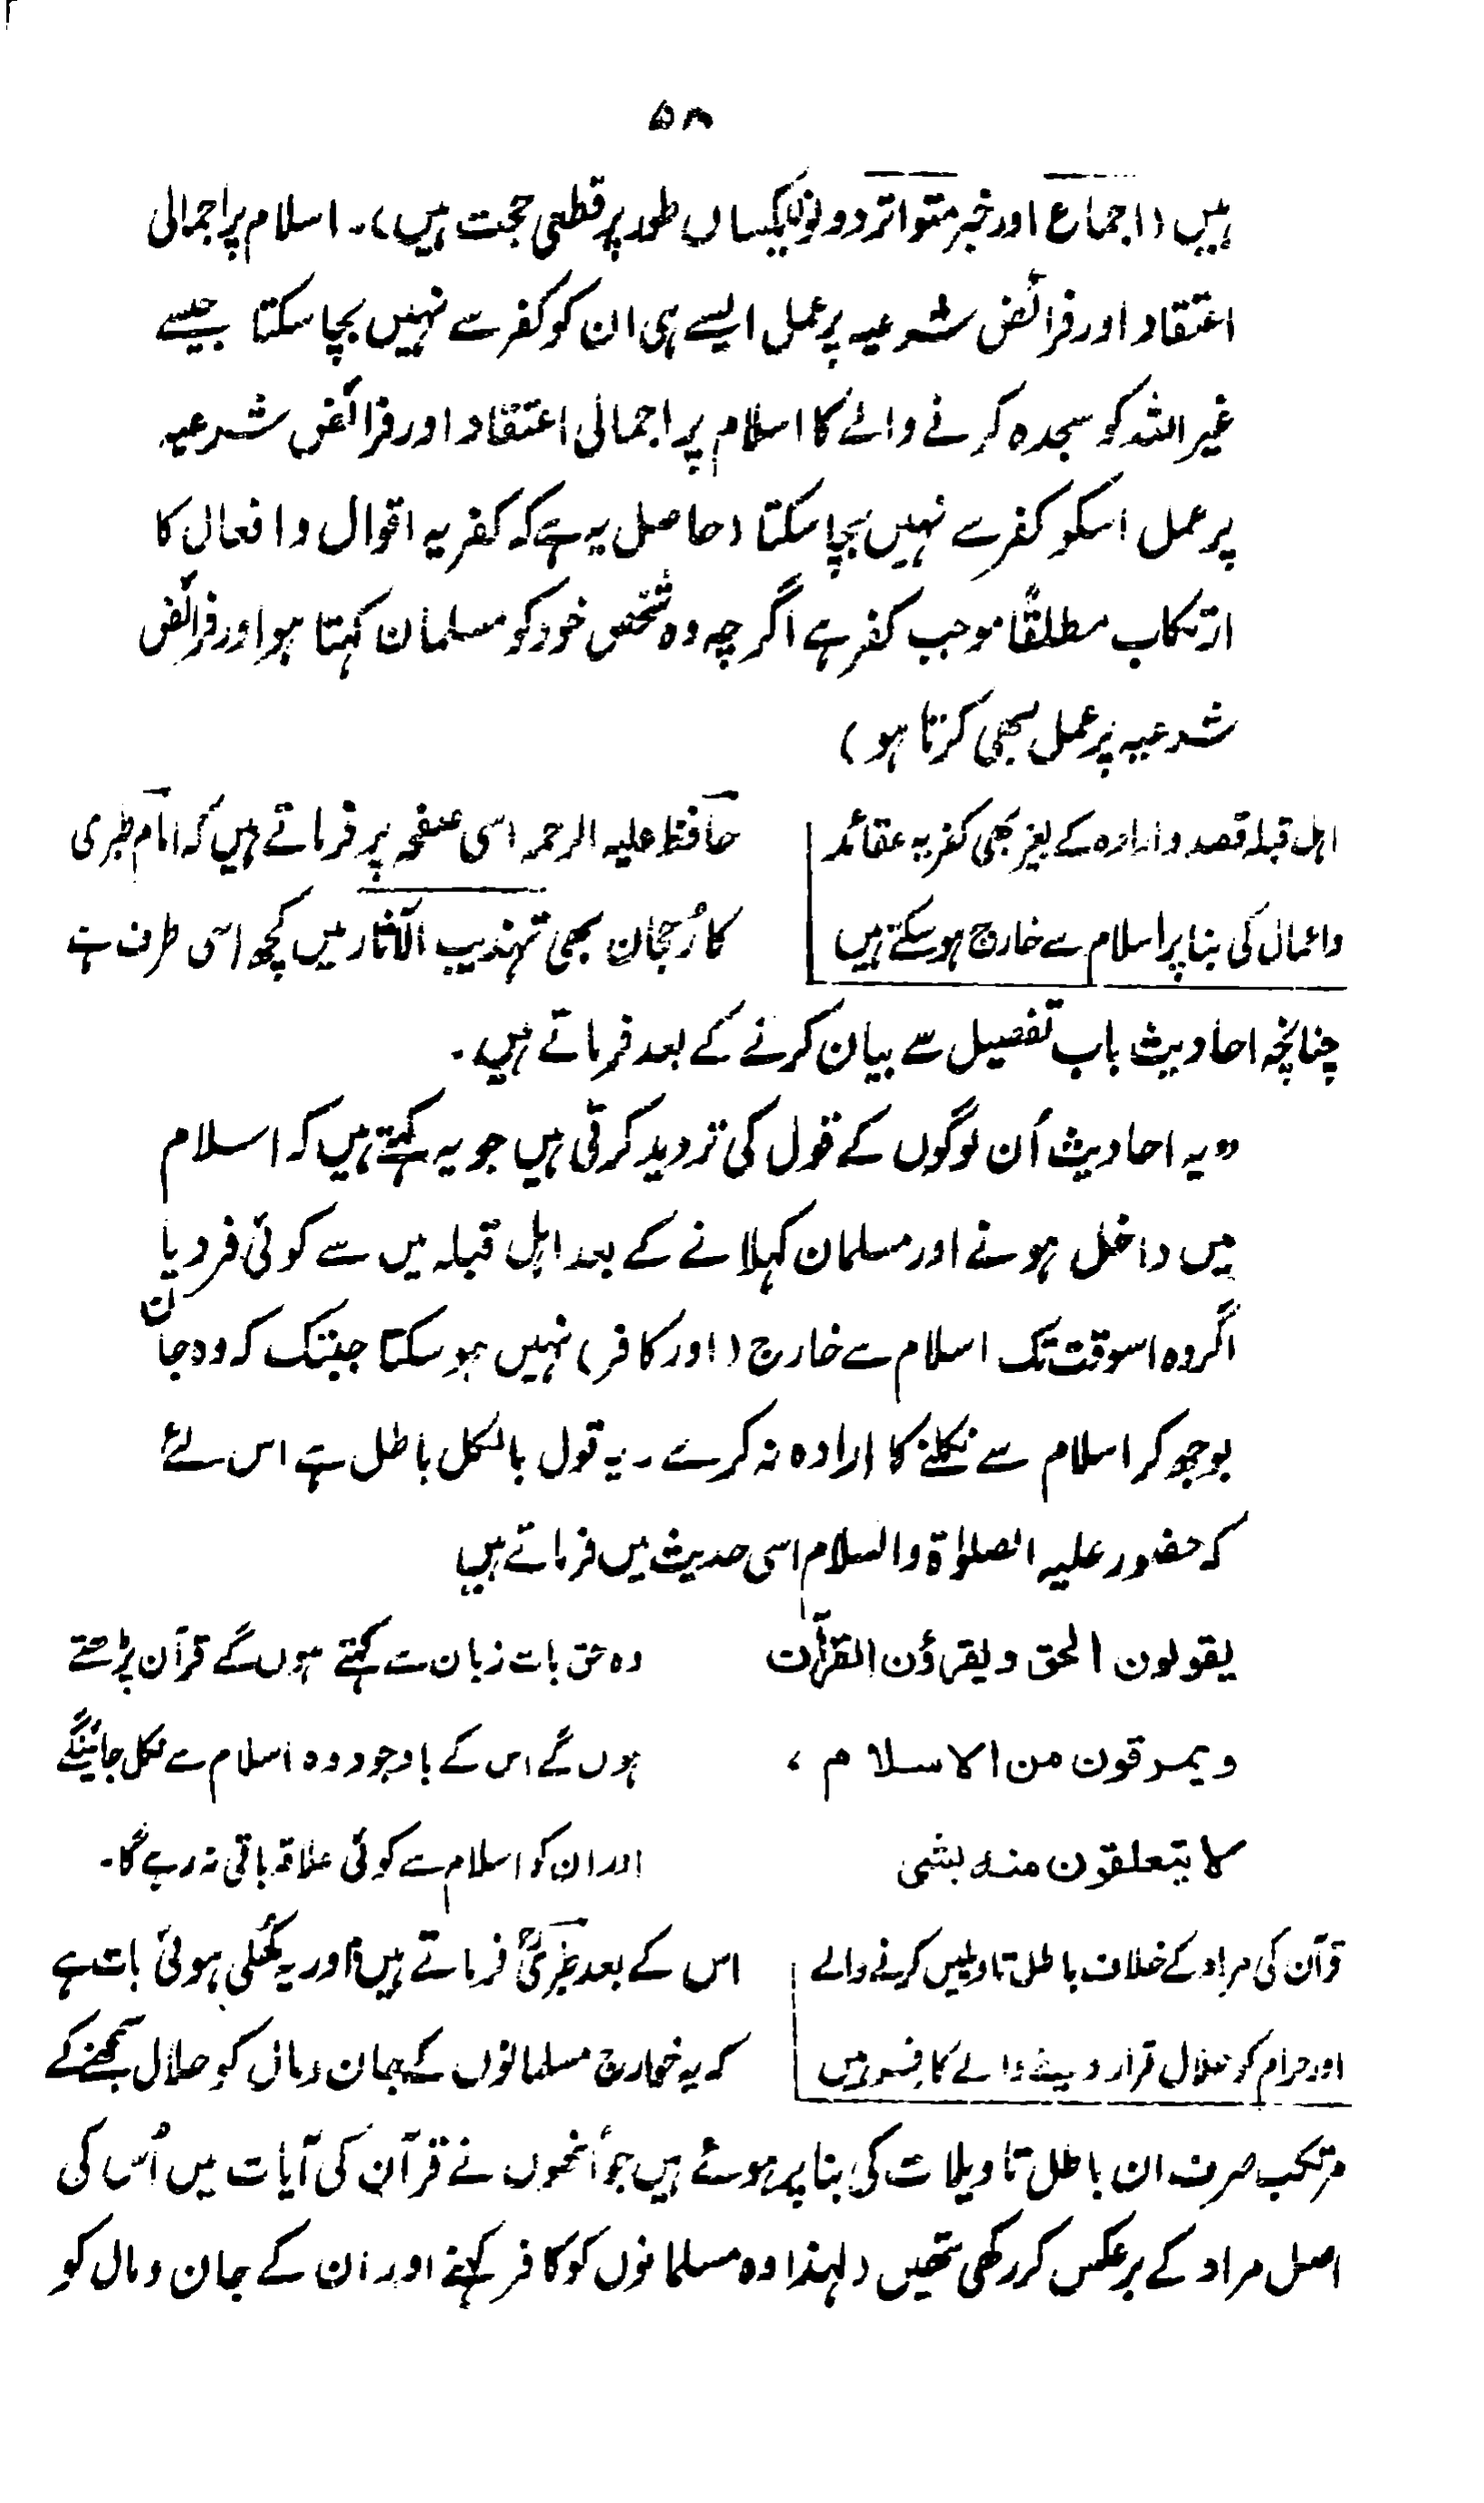 ۵۸
ہیں (اجماع اور خبر متواتر دونوں یکساں طور پر قطعی حجت ہیں)۔ اسلام پر اجمالی
اعتقاد اور فرائض شرعیہ پر عمل ایسے ہی ان کو کفر سے نہیں بچا سکتا جیسے
غیر اللہ کو سجدہ کرنے والے کا اسلام پر اجمالی اعتقاد اور فرائض شرعیہ
پر عمل اسکو کفر سے نہیں بچا سکتا (حاصل یہ ہے کہ کفریہ اقوال وافعال کا
ارتکاب مطلقاً موجب کفر ہے اگرچہ وہ شخص خود کو مسلمان کہتا ہو اور فرائض
شرعیہ پر عمل بھی کرتا ہو)
اہل قبلہ قصد وارادہ کے بغیر بھی کفریہ عقائد
واعمال کی بنا پر اسلام سے خارج ہو سکتے ہیں
حافظ علیہ الرحمہ اسی صفحہ پر فرماتے ہیں کہ امام طبری
کا رُجحان بھی تہذیب الآثار میں کچھ اسی طرف ہے
چنانچہ احادیث باب تفصیل سے بیان کرنے کے بعد فرماتے ہیں۔
"یہ احادیث اُن لوگوں کے قول کی تردید کرتی ہیں جو یہ کہتے ہیں کہ اسلام
میں داخل ہونے اور مسلمان کہلانے کے بعد اہل قبلہ میں سے کوئی فرد یا
اگروہ اسوقت تک اسلام سے خارج (اور کافر) نہیں ہو سکتا جبتک کہ وہ جان
بوجھ کر اسلام سے نکلنے کا ارادہ نہ کرے۔ یہ قول بالکل باطل ہے اس لئے
کہ حضور علیہ الصلوٰۃ والسلام اسی حدیث میں فرماتے ہیں
یقولون الحق ویقرؤن القرآن
وہ حق بات زبان سے کہتے ہوں گے قرآن پڑھتے
ویمرقون من الاسلام ،
ہوں گے اس کے باوجود وہ اسلام سے نکل جائینگے
لا یتعلقون منہ بشی
اور ان کو اسلام سے کوئی علاقہ باقی نہ رہے گا۔
قرآن کی مراد کے خلاف باطل تاویلیں کرنے والے
اور حرام کو حلال قرار دینے والے کافر ہیں
اس کے بعد طبریؒ فرماتے ہیں اور یہ کھلی ہوئی بات ہے
کہ یہ خارجی مسلمانوں کے جان ومال کو حلال سمجھنے کے
مرتکب صرف ان باطل تاویلات کی بنا پر ہوئے ہیں جو اُنھوں نے قرآن کی آیات میں اُس کی
اصل مراد کے برعکس کر رکھی تھیں (لہذا وہ مسلمانوں کو کافر کہنے اور ان کے جان ومال کو